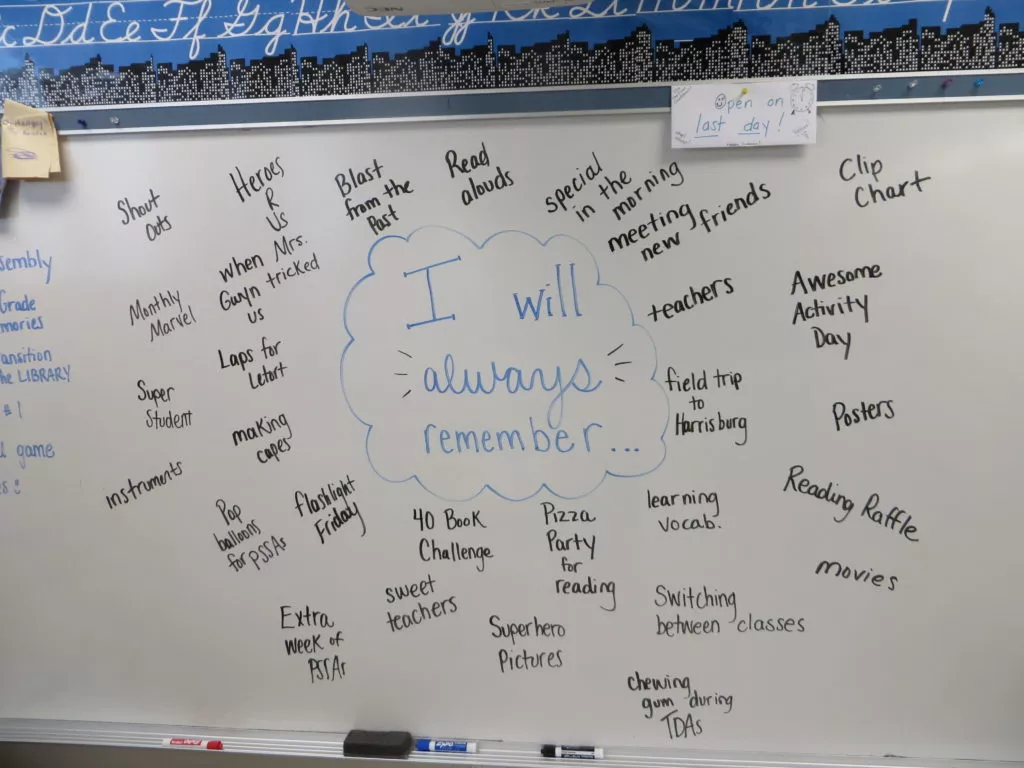 c Dd Ee Ff Gg Hh
NEC
Open on
last day!
I will
always
remember...
Shout
Outs
Heroes
R
Us
Blast
from the
Past
Read
alouds
special
in the
morning
meeting
new friends
Clip
Chart
when Mrs.
Gwyn tricked
us
Monthly
Marvel
teachers
Awesome
Activity
Day
Laps for
Letort
Super
Student
field trip
to
Harrisburg
Posters
making
capes
instruments
Pop
balloons
for PSSAs
flashlight
Friday
40 Book
Challenge
Pizza
Party
for
reading
learning
vocab.
Reading Raffle
movies
sweet
teachers
Extra
week of
PSSAs
Superhero
Pictures
Switching
between classes
chewing
gum during
TDAs
sembly
Grade
mories
ansition
he LIBRARY
#1
game